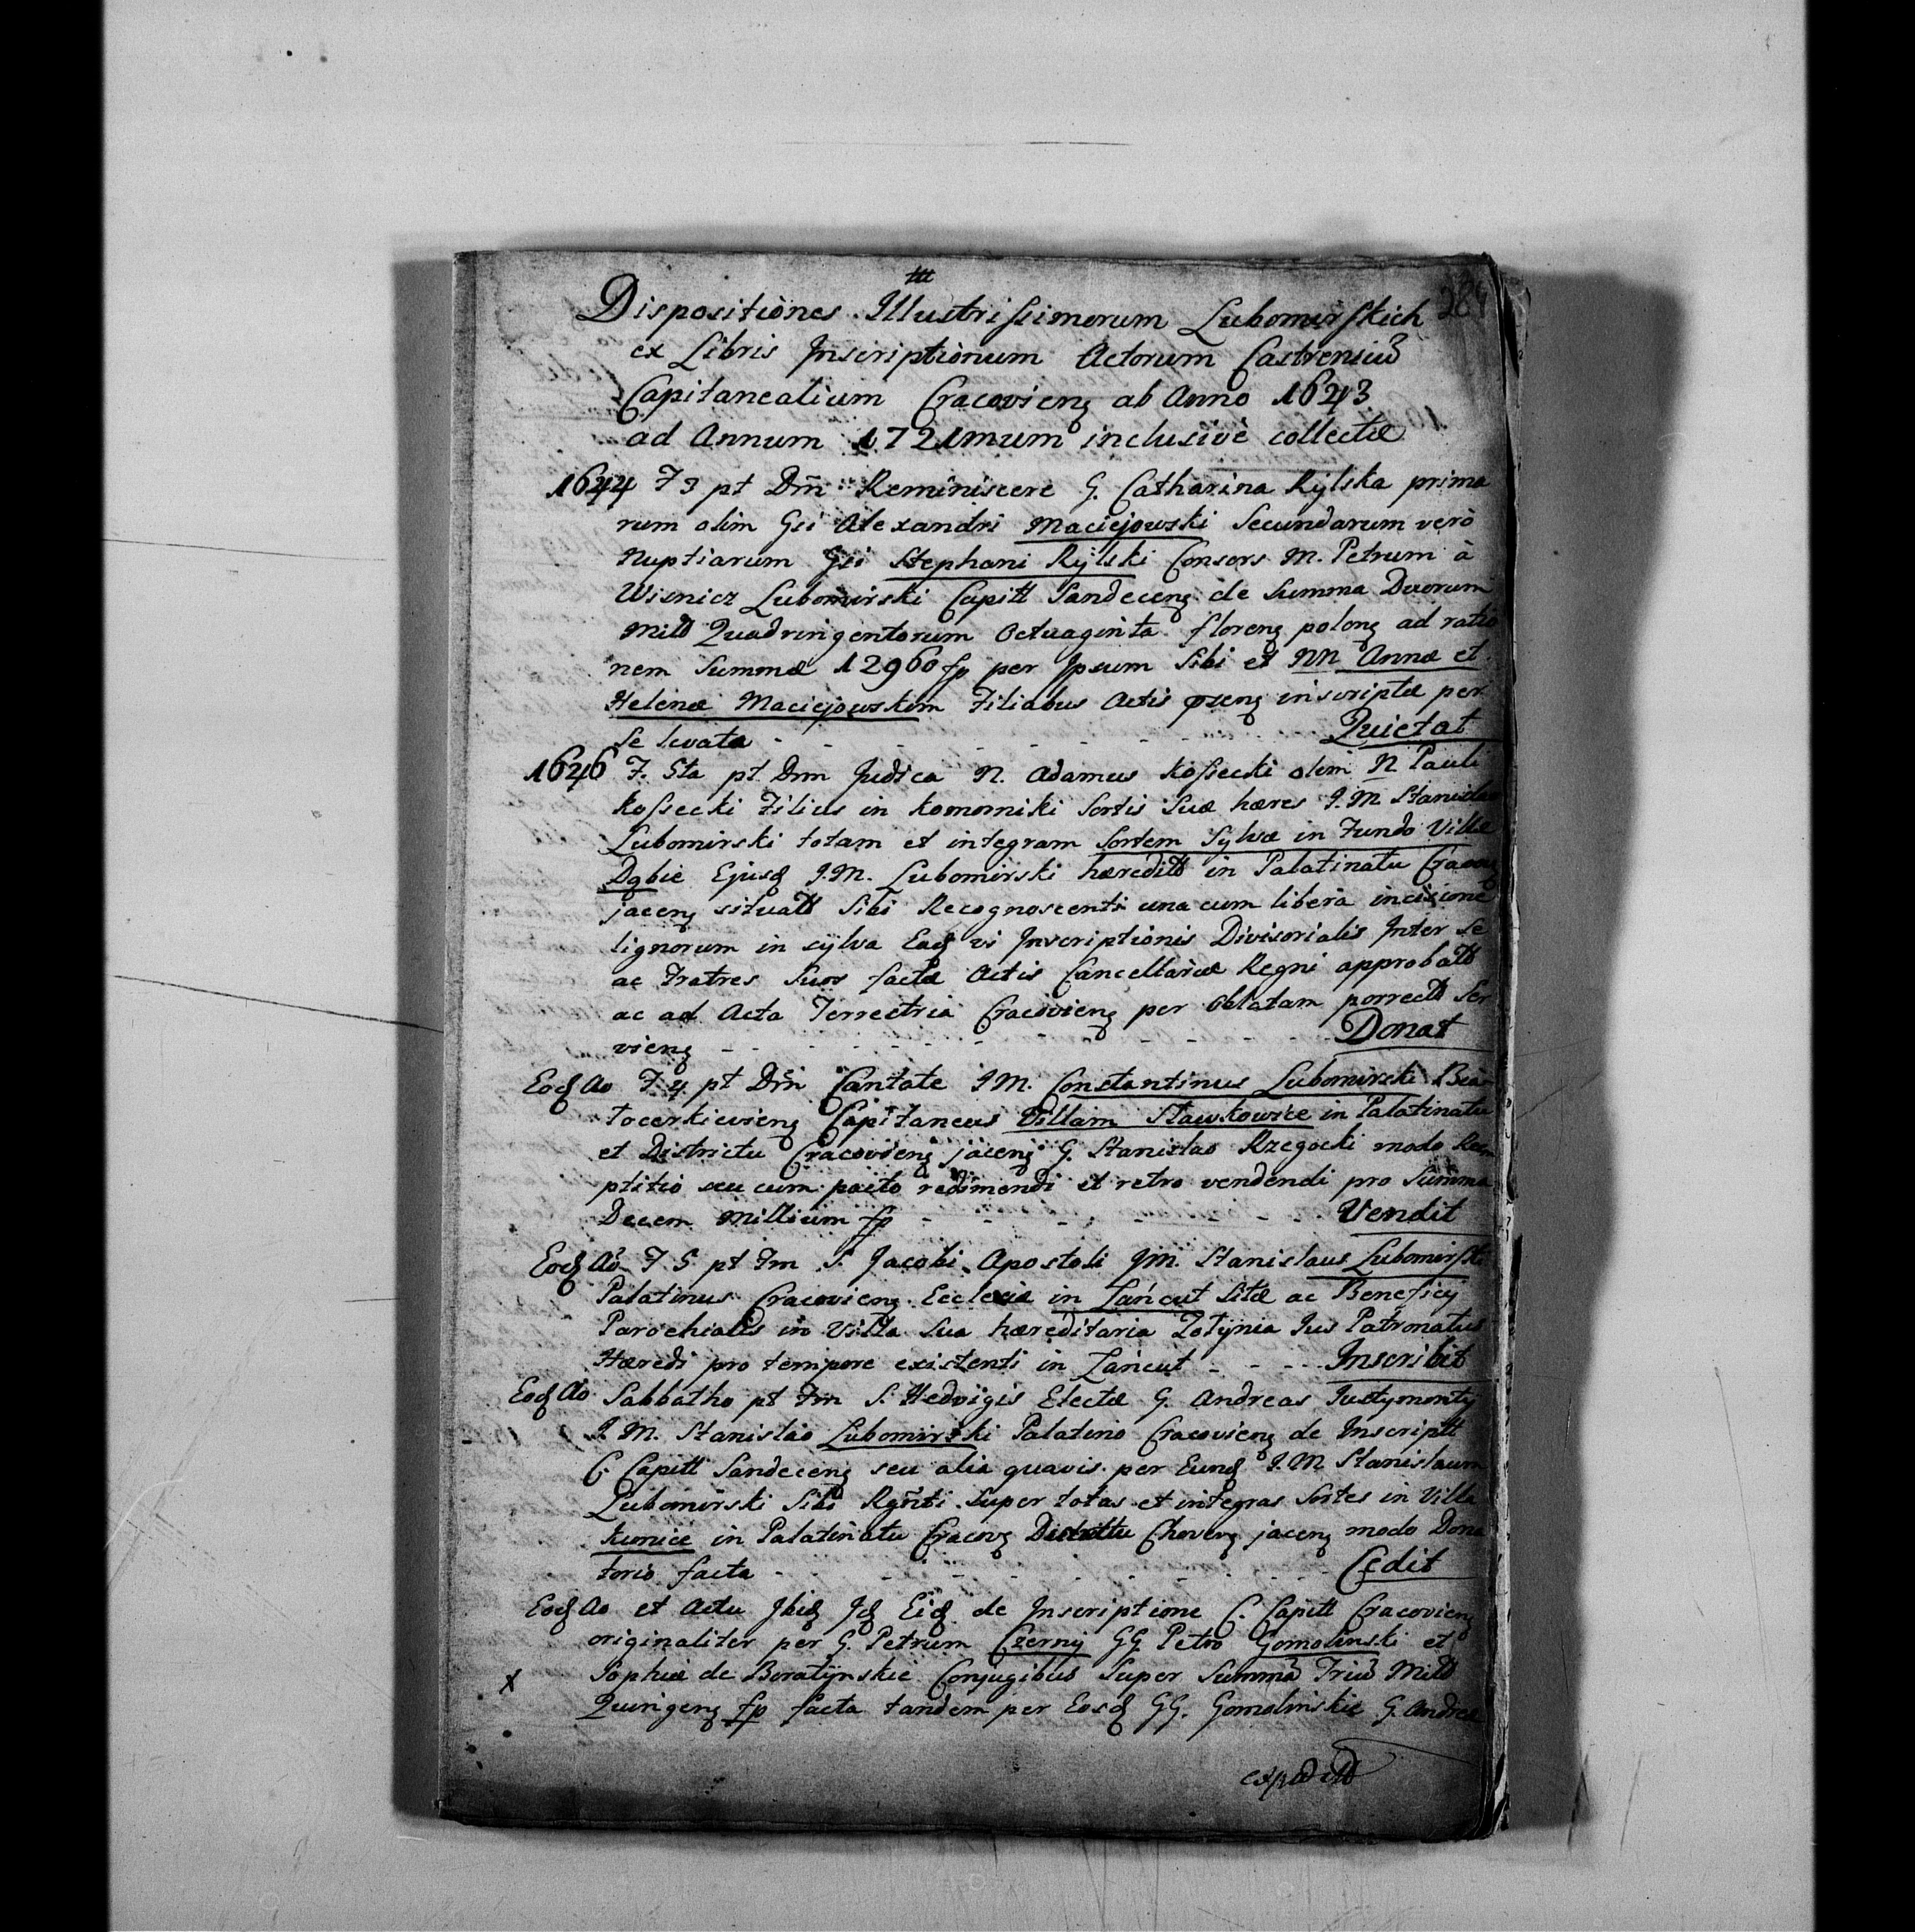 ttt
284
Dispositiones Illustrissimorum Lubomirskich
ex Libris Inscriptionum Actorum Castrensiũ
Capitanealium Cracovieng ab Anno 1643
ad Annum 1721mum inclusivè collectæ
1644 F 3 pt Dm̃ Reminiscere G. Catharina Rylska prima
rum olim Gsi Alexandri Maciejowski Secundarum verò
Nuptiarum Gsi Stephani Rylski Consors M. Petrum à
Wisnicz Lubomirski Capitt Sandeceng de Summa Duorum
Mill Quadringentorum Octuaginta floreng polong ad ratio
nem Summæ 12960 fp per Ipsum Sibi et NN Annæ et
Helenæ Maciejowskim Filiabus Actis pzeng inscriptæ per
Se levata - - - - - - - - Quietat
1646 F. 5ta pt Dnm Judica N. Adamus Kossecki olim N Pauli
Kossecki Filius in Komorniki Sortis Suæ hæres I.M. Stanislao
Lubomirski totam et integram Sortem Sylvæ in Fundo Villæ
Dąbie Ejusq I.M. Lubomirski hæredit in Palatinatu Cracov
jaceng situatt Sibi Recognoscenti una cum liberà incisione
lignorum in sylva Eaq vi Inscriptionis Divisorialis Inter Se
ac Fratres Suos factæ Actis Cancellariæ Regni approbatt
ac ad Acta Terrestria Cracovieng per Oblatam porrectt Ser
vieng - - - - - - - - Donat
Eoq Ao F. 4 pt Dm̃ Cantate IM. Constantinus Lubomirski Biał
tocerkievieng Capitaneus Villam Sławkowice in Palatinatu
et Districtu Cracovieng jaceng G. Stanislao Rzegocki modo Rece
ptitio seu cum pacto redimendi et retro vendendi pro Summa
Decem Millium fp - - - - - - Vendit
Eoq Ao F 5 pt Fm S. Jacobi Apostoli IM. Stanislaus Lubomirski
Palatinus Cracovieng Ecclesiæ in Łańcut Sitæ ac Beneficij
Parochialis in Villa Sua hæreditaria Żołynia Ius Patronatus
Hæredi pro tempore existenti in Łańcut - - - Inscribit
Eoq Ao Sabbatho pt Fm S. Hedvigis Electæ G. Andreas Justymonty
I.M. Stanislao Lubomirski Palatino Cracovieng de Inscriptt
C. Capitt Sandeceng seu alia quavis per Eunq I.M Stanislaum
Lubomirski Sibi Rgnti Super totas et integras Sortes in Villa
Kunice in Palatinatu Cracovg Districtu jaceng modo Dona
torio facta - - - - - - - - Cedit
Eoq Ao et Actu Ibiq Iq Eiq de Inscriptione C. Capitt Cracovieng
originaliter per G. Petrum Czerny GG. Petro Gomolinski et
x Sophiæ de Boratynskie Conjugibus Super Summã Triũ Mill
Quingeng fp facta tandem per Eosq GG. Gomolinskie G. Andreæ